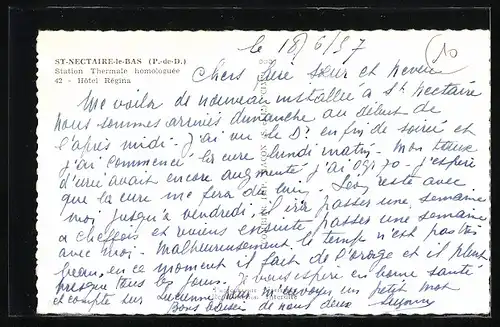 le 18/6/57
10
ST-NECTAIRE-le-BAS (P.-de-D.)
Station Thermale homologuée
42 - Hôtel Régina
Chers frère sœur et neveu
Me voilà de nouveau installée à St Nectaire
Nous sommes arrivés dimanche au début de
l'après midi - J'ai vu le Dr en fin de soirée et
j'ai commencé la cure lundi matin. Mon taux
d'urée avait encore augmenté j'ai 0gr70 - j'espère
que la cure me fera du bien. Léon reste avec
moi jusqu'à vendredi. il ira passer une semaine
à et viens ensuite passer une semaine
avec moi. Malheureusement le temps n'est pas très
beau, en ce moment il fait de l'orage et il pleut
presque tous les jours. Je vous espère en bonne santé
et compte sur Lucienne pour m'envoyer un petit mot
Bons baisers de nous deux Suzanne
interdite